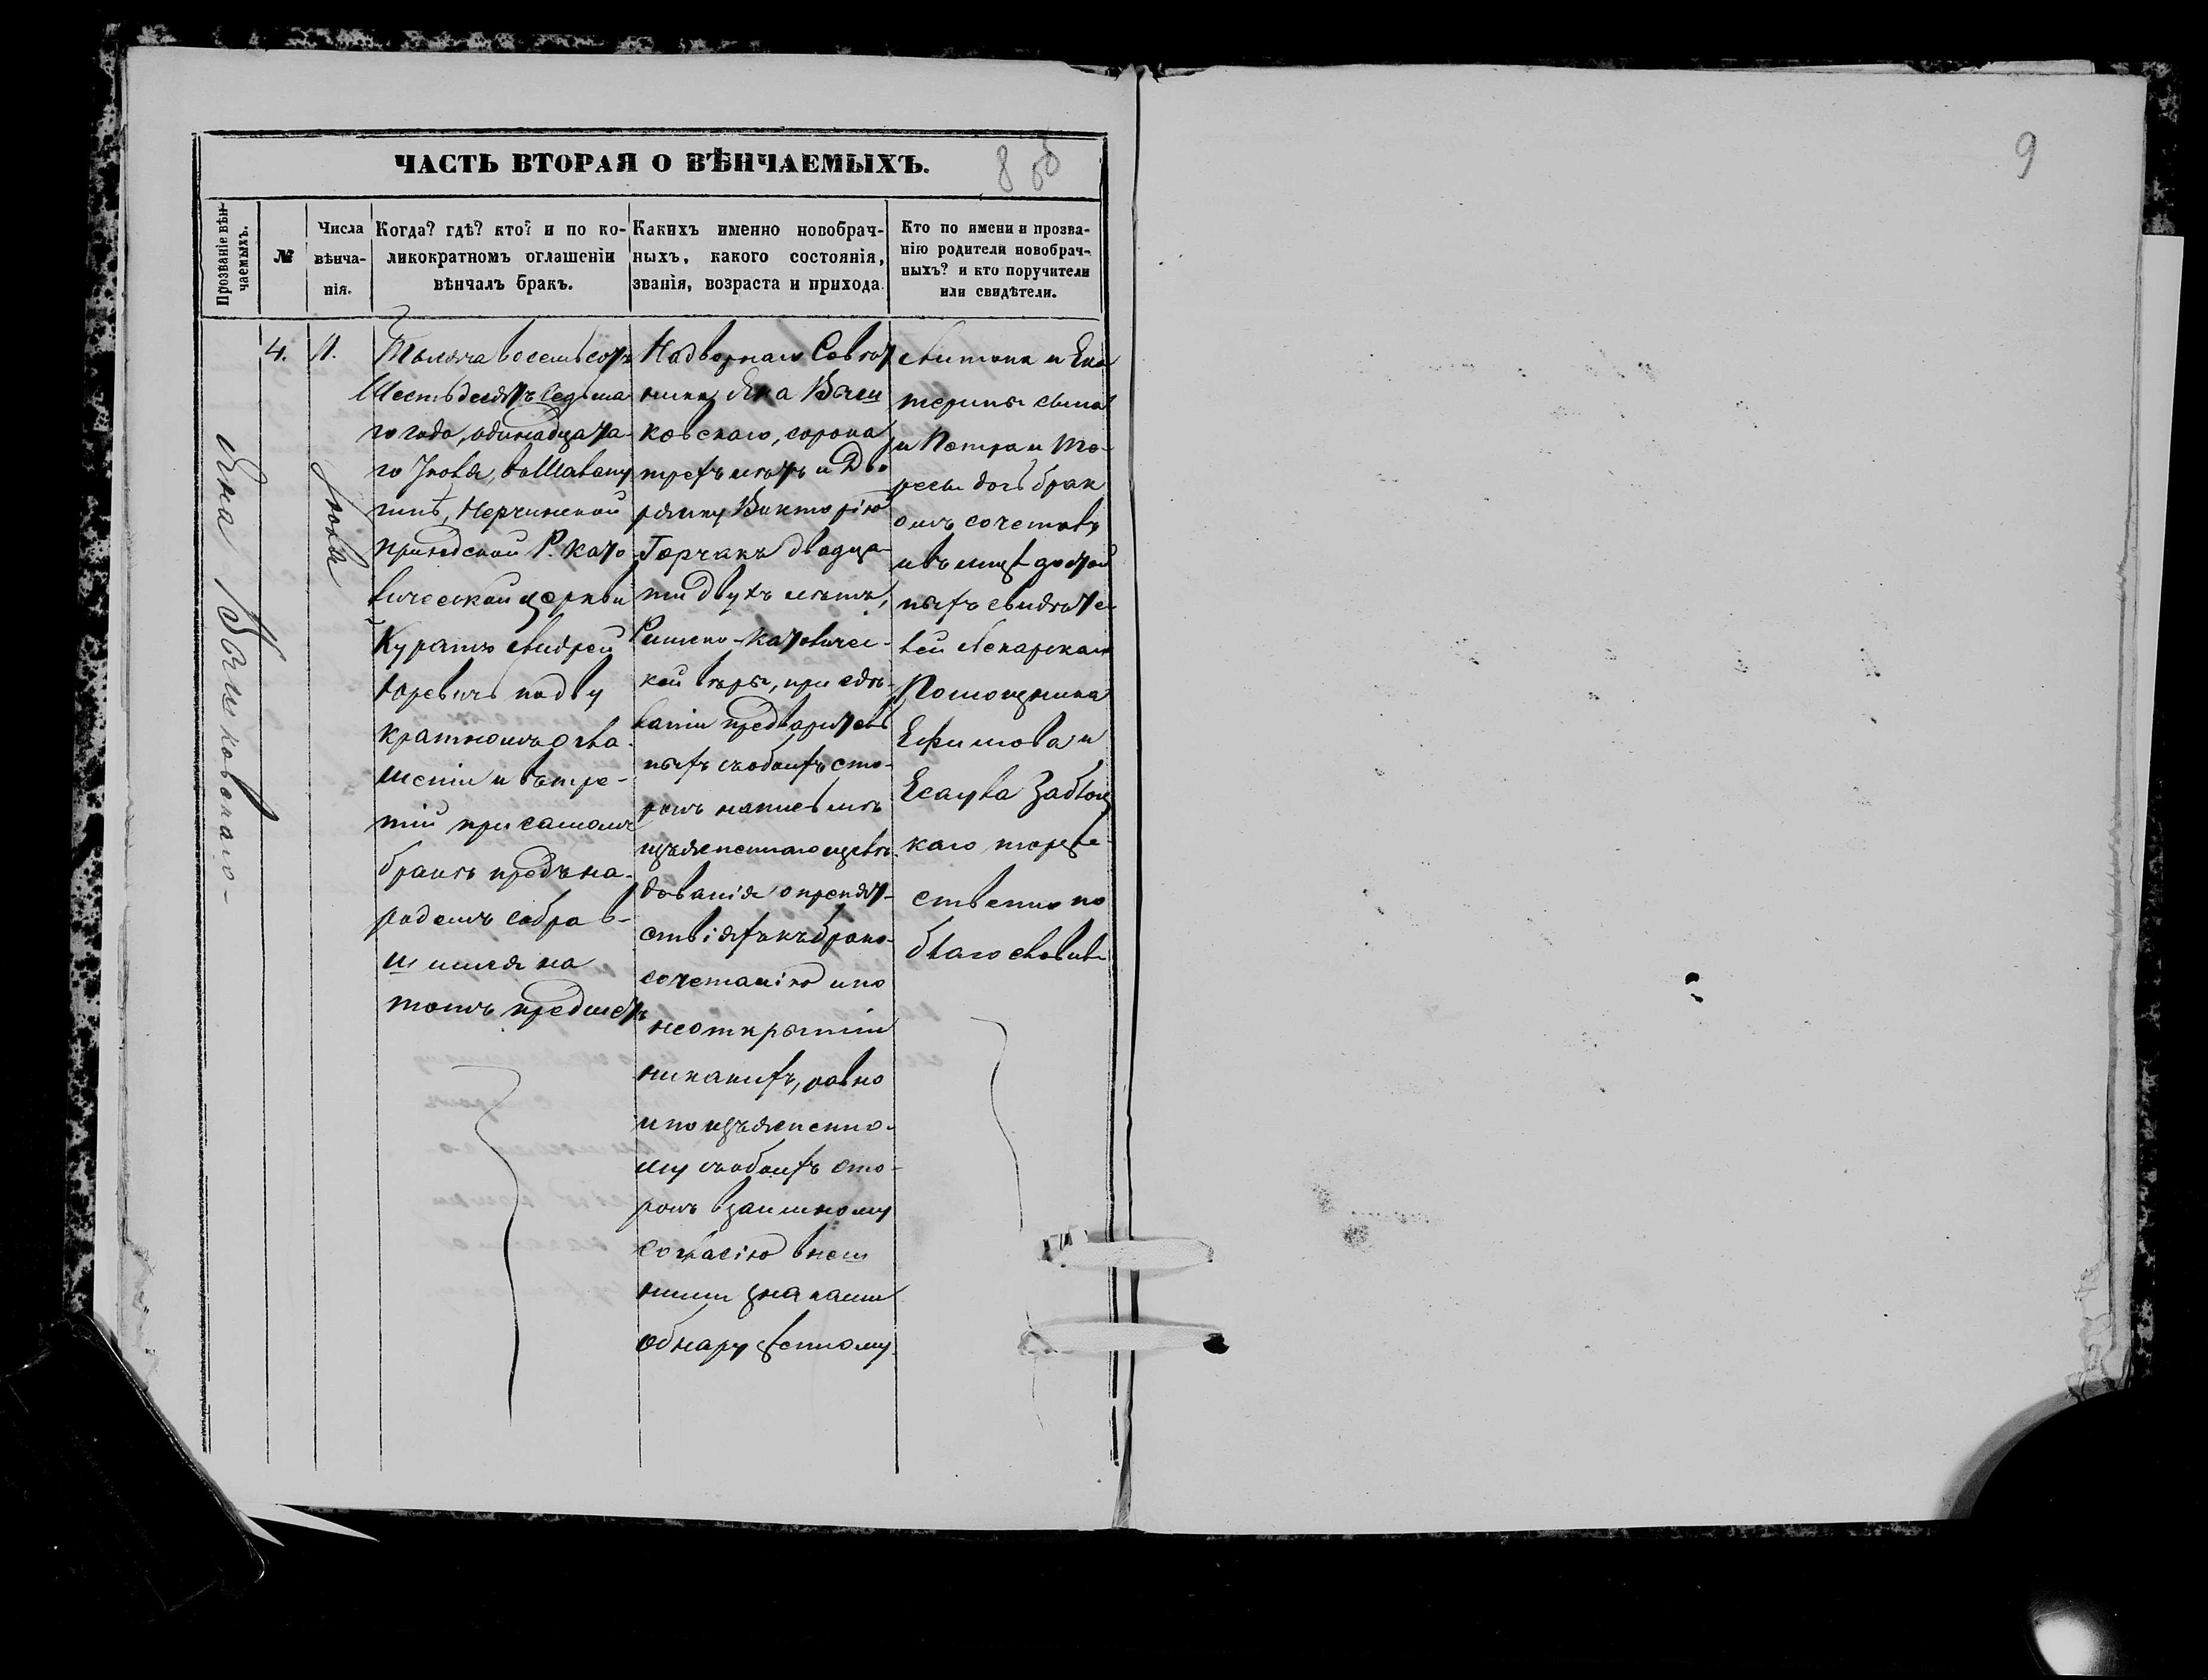 ЧАСТЬ ВТОРАЯ О ВѢНЧАЕМЫХЪ.
8 об
Прозваніе вѣн-
чаемыхъ.
№
Числа
вѣнча-
нія.
Когда? гдѣ? кто? и по ко-
ликократномъ оглашеніи
вѣнчалъ бракъ.
Каких именно новобрач-
ныхъ, какого состоянія,
званія, возраста и прихода
Кто по имени и прозва-
нію родители новобрач-
ныхъ? и кто поручители
или свидѣтели.
Яна
4.
11.
Іюля
Тысяча восемьсотъ
Шестьдесятъ седьма
го года, одинадцата-
го Іюля,
Нерчинской
приходской Р. Като
лической церкви
Куратъ Андрей
Юревичъ по дву
кратномъ огла-
шеніи и въ тре-
тій при самомъ
бракѣ предъ на-
родомъ собрав-
шимся на
томъ предметъ
Надворнаго Совѣт
ника Яна
ковскаго, сорока
трехъ лѣтъ и Дво
рянку Викторію
Горчакъ двадца-
ти двухъ лѣтъ,
Римско-католичес-
кой вѣры, при сдѣ-
ланіи предваритель
ныхъ съ обоихъ сто-
ронъ написьмѣ
изъясненнаго изслѣ-
дованія о препят-
ствіяхъ къ брако-
сочетанію и по
неоткрытіи
никакихъ, равно
и по изъясненно-
му съ обоихъ сто-
ронъ взаимному
согласію внеш
ними знаками
обнаруженному
Антона и Ека
терины сына
и Петра и Те-
ресы дочь брак
омъ сочеталъ
и въ лицѣ достой
ныхъ свидѣте-
лей Лекарскаго
Помощника
Ефимова и
Есаула Заблоц
каго торже-
ственно по
благословилъ
9